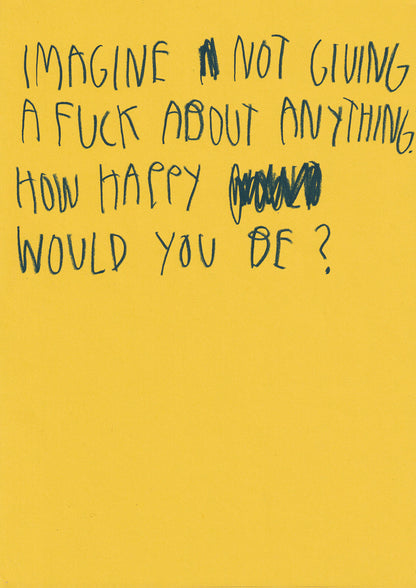 IMAGINE NOT GIVING
A FUCK ABOUT ANYTHING.
HOW HAPPY
WOULD YOU BE?